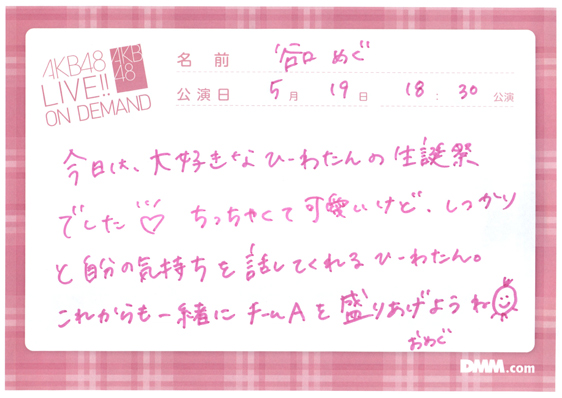 AKB48
LIVE!!
ON DEMAND
AKB
48
名前 谷口 めぐ
公演日 5月 19日 18:30 公演
今日は、大好きなひーわたんの生誕祭
でした♡ ちっちゃくて可愛いけど、しっかり
と自分の気持ちを話してくれるひーわたん。
これからも一緒にチームAを盛りあげようね
おめぐ
DMM.com